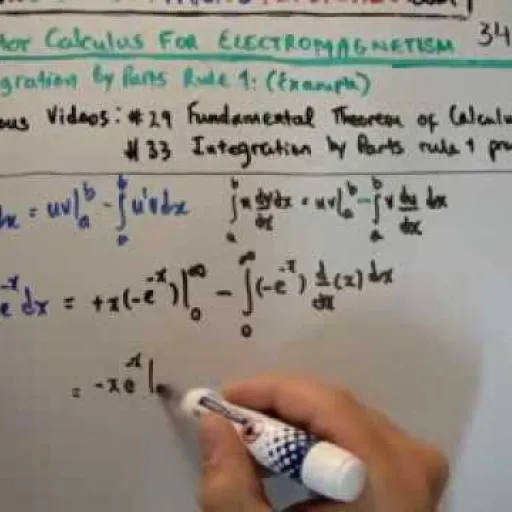 tor Calculus For ELECTROMAGNETISM 34
gration by Parts Rule 1: (Example)
ous Videos: #29 Fundamental Theorem of Calculu
#33 Integration by Parts rule 1 pro
dx = uv|_a^b - ∫_a^b u'v dx   ∫_a^b u dv/dx dx = uv|_a^b - ∫_a^b v du/dx dx
e^-x dx = +x(-e^-x)|_0^∞ - ∫_0^∞ (-e^-x) d/dx (x) dx
= -xe^-x|